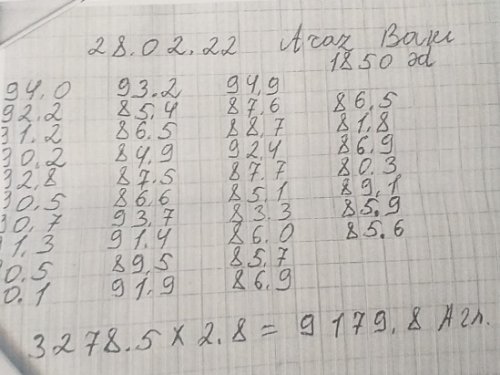 28.02.22 Araz Bakı
1850 əd
94.0 93.2 94,9
92.2 85,4 87,6 86,5
91.2 86.5 88,7 81,8
90.2 84,9 92,4 86,9
92,8 87.5 87.7 80.3
90.5 86,6 85,1 89,1
90,7 93,7 83.3 85.9
1,3 91.4 86.0 85.6
0.5 89,5 85,7
0.1 91.9 86,9
3278.5 x 2.8 = 9179,8 Agл.